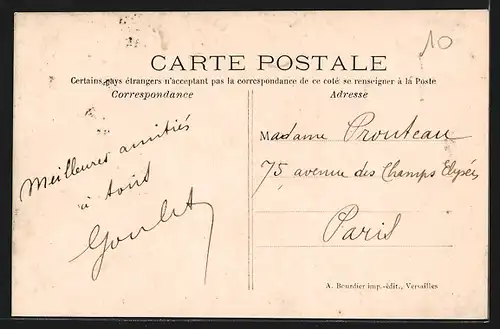 10
CARTE POSTALE
Certains pays étrangers n'acceptant pas la correspondance de ce coté se renseigner à la Poste
Correspondance
Meilleures amitiés
à tous
Goulet
Adresse
Madame Prouteau
75 avenue des Champs Elysées
Paris
A. Bourdier imp.-édit., Versailles